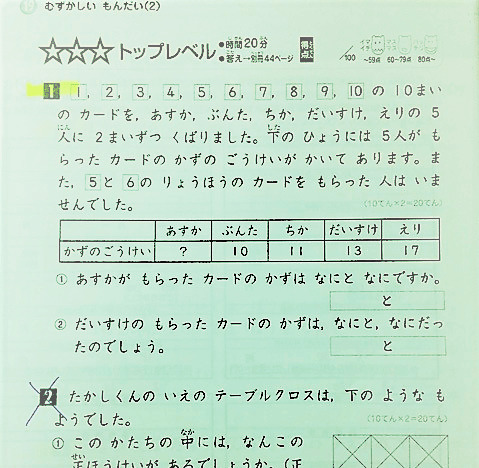 むずかしい もんだい(2)
☆☆☆トップレベル
●時間20分
●答え→別冊44ページ
得点
/100
~59点 60~79点 80点~
1 1, 2, 3, 4, 5, 6, 7, 8, 9, 10 の 10まい
の カードを, あすか, ぶんた, ちか, だいすけ, えりの 5
人に 2まいずつ くばりました。下の ひょうには 5人が も
らった カードの かずの ごうけいが かいて あります。ま
た, 5と 6の りょうほうの カードを もらった 人は いま
せんでした。
(10てん×2=20てん)
あすか ぶんた ちか だいすけ えり
かずのごうけい ? 10 11 13 17
① あすかが もらった カードの かずは なにと なにですか。
と
② だいすけの もらった カードの かずは, なにと, なにだっ
たのでしょう。
と
2 たかしくんの いえの テーブルクロスは, 下の ような も
ようでした。
(10てん×2=20てん)
① この かたちの 中には, なんこの
正ほうけいが あるでしょうか。(正